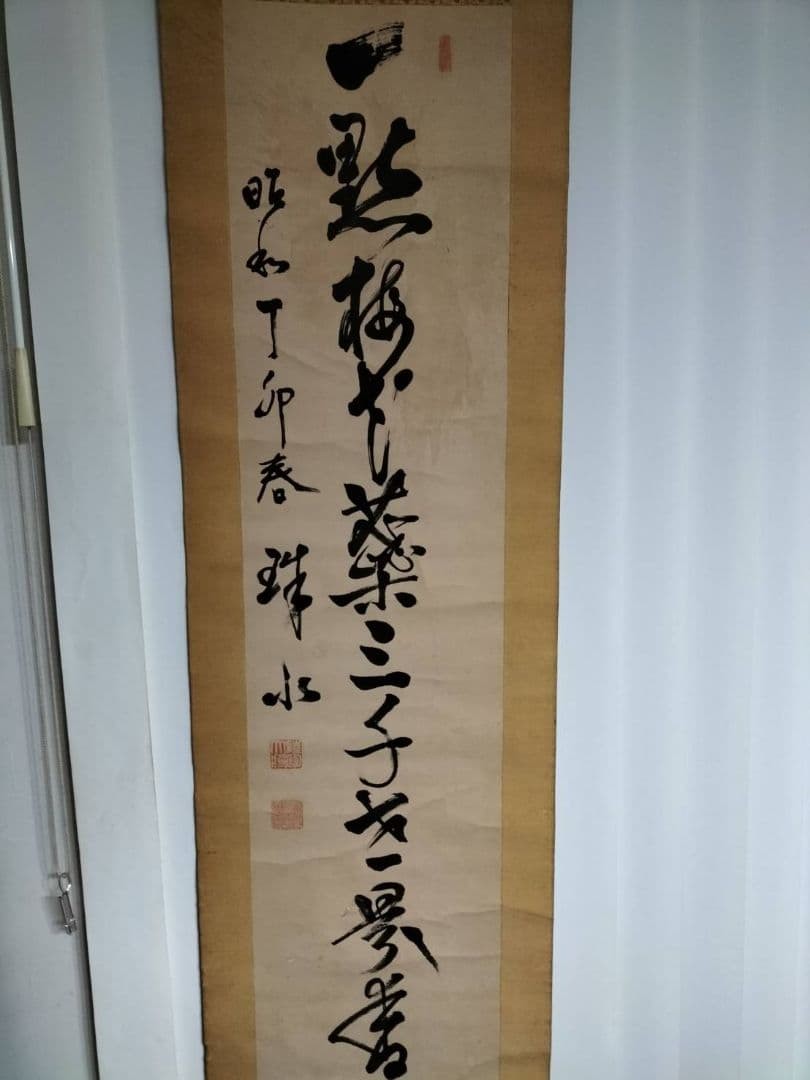 一點梅花蘂三千世界香
昭和丁卯春 珠水